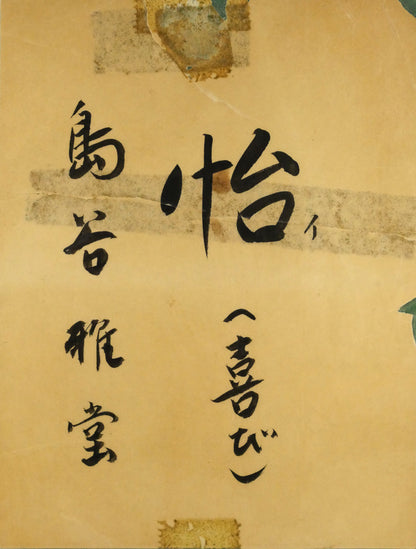 怡イ
（喜び）
島谷雅堂